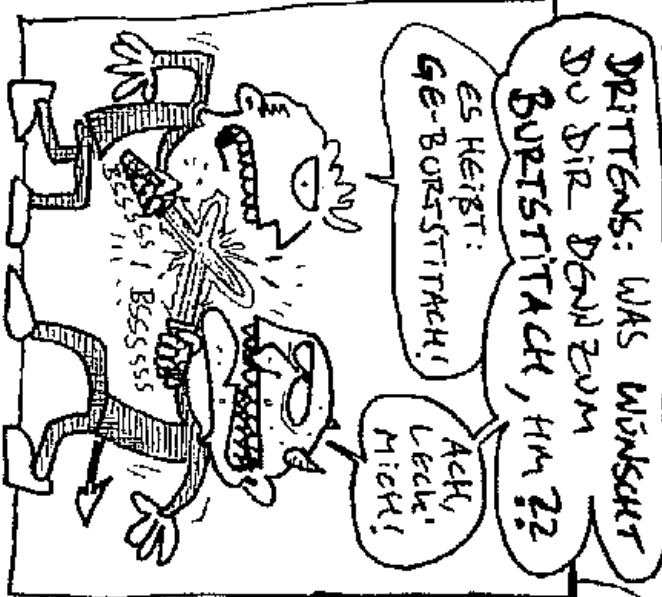 DRITTENS: WAS WÜNSCHT
DU DIR DENN ZUM
BURTSTITACH, HM ??
ES HEIßT:
GE-BURTSTITACH!
ACH,
LECK'
MICH!
BSSSSSS! BSSSSSS